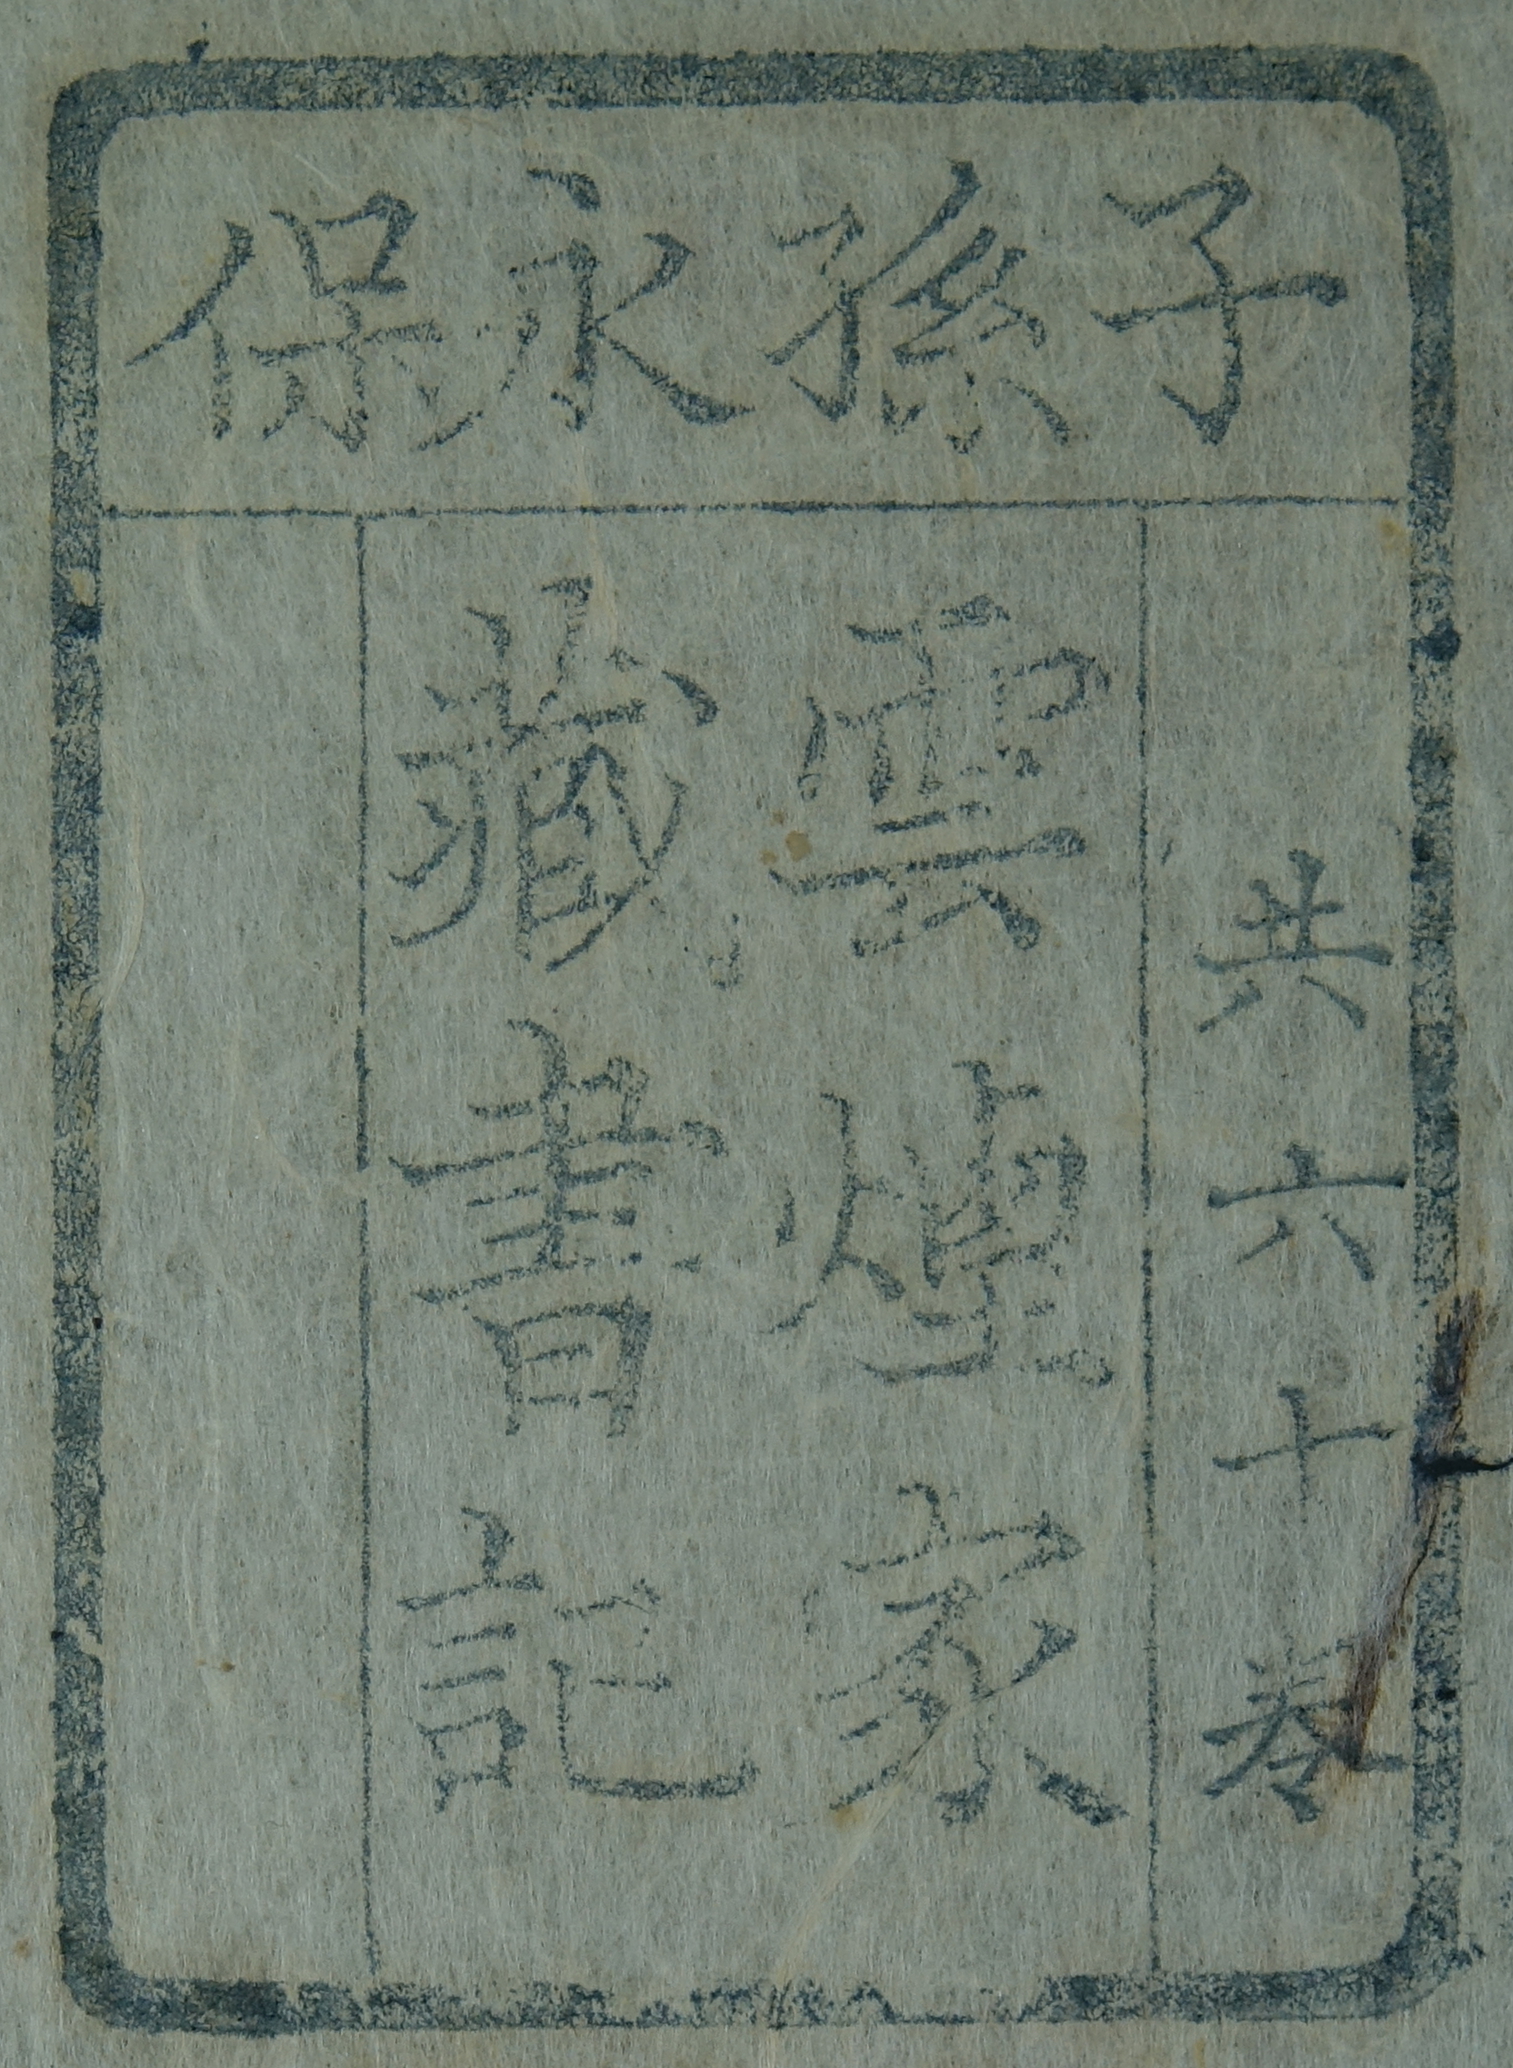 子孫永保
共六十卷
雲煙家
藏書記